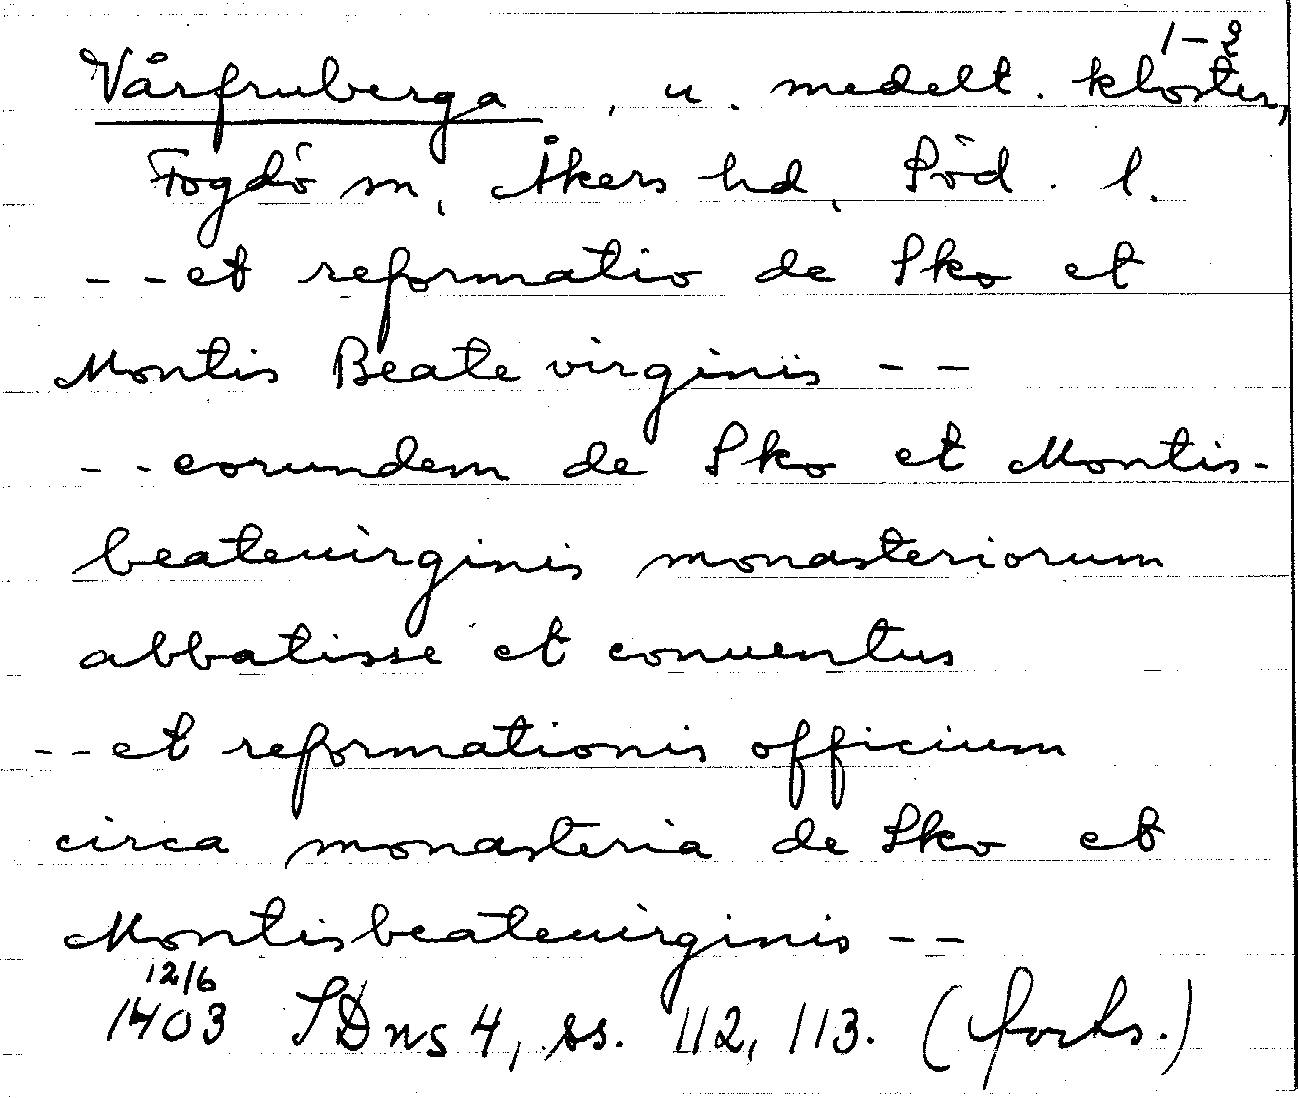 1-2
Vårfruberga, u. medelt. kloster,
Fogdö sn, Åkers hd, Söd. l.
--et reformatio de Sko et
Montis Beate virginis --
--eorundem de Sko et Montis-
beateuirginis monasteriorum
abbatisse et conuentus
--et reformationis officium
circa monasteria de Sko et
Montisbeateuirginis --
12/6
1403 SDns 4, ss. 112, 113. (forts.)